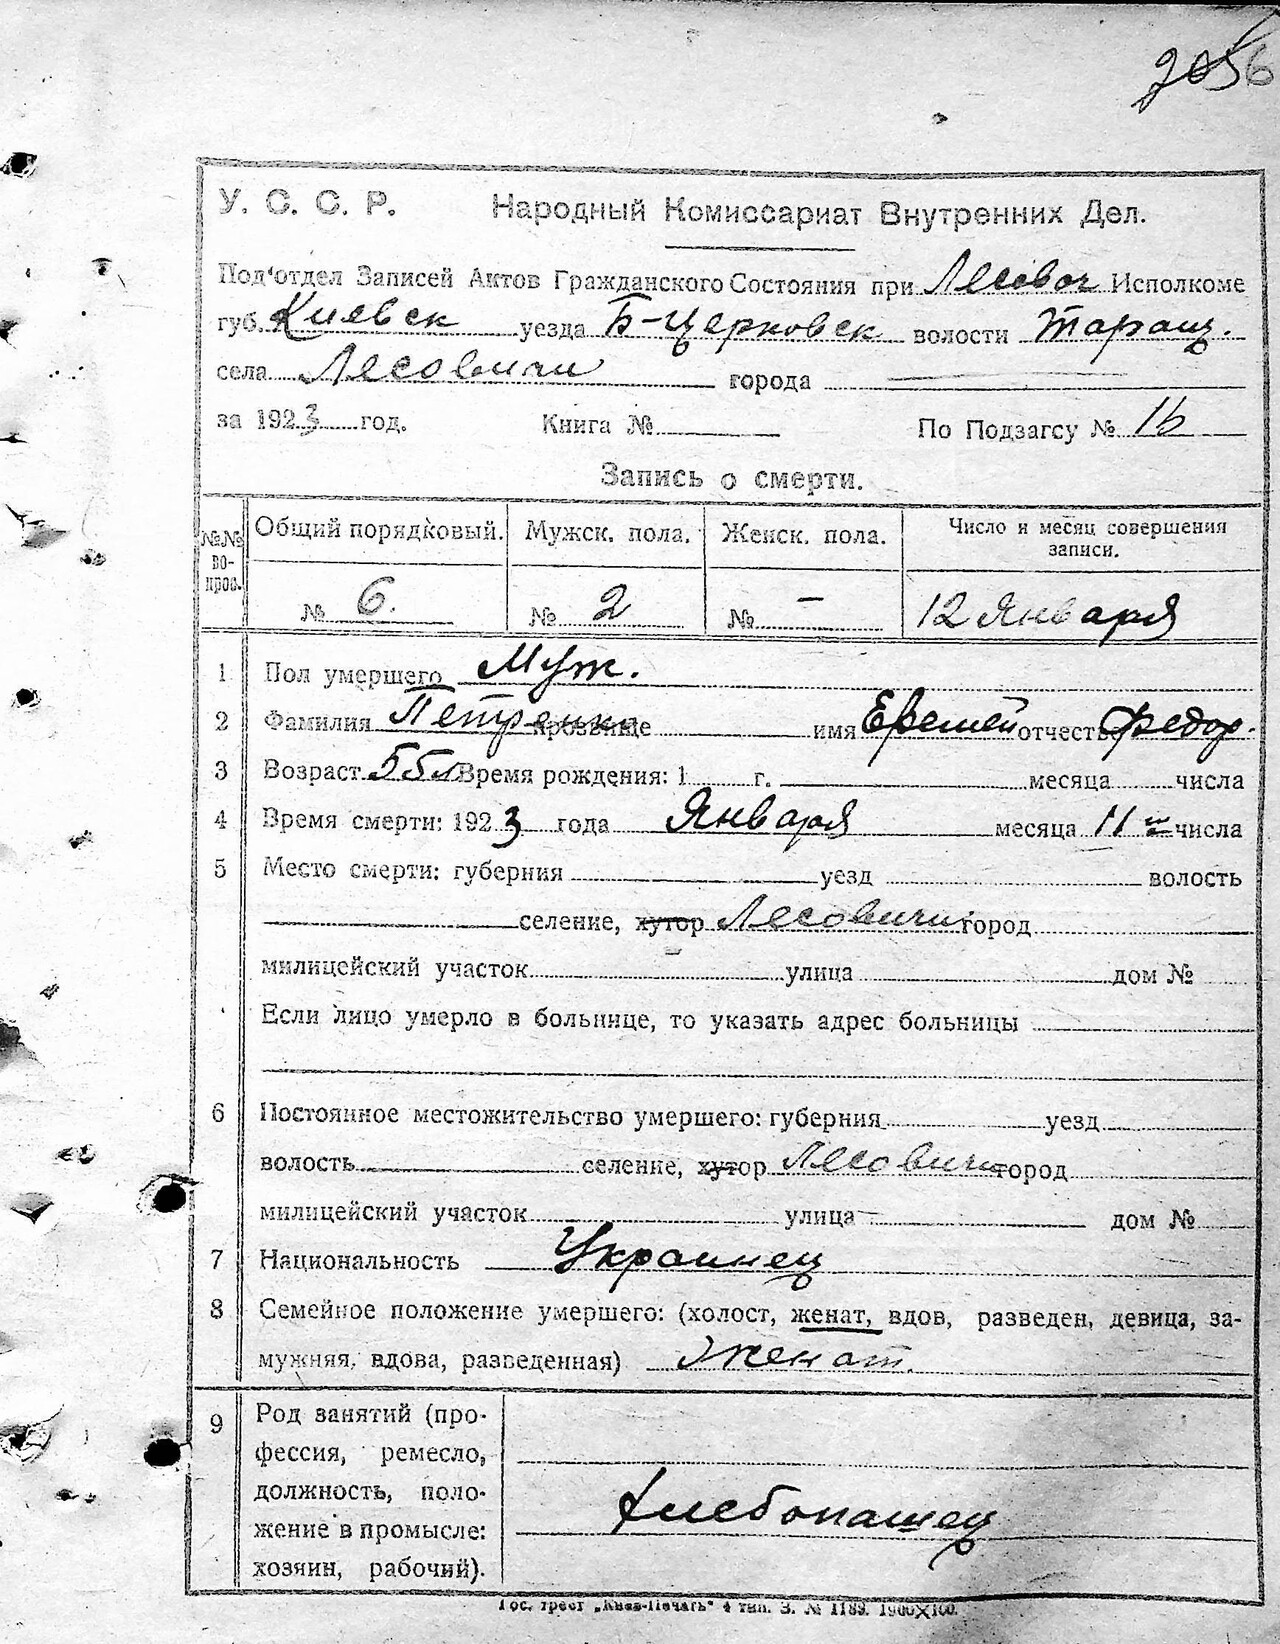 У. С. С. Р. Народный Комиссариат Внутренних Дел.
Под'отдел Записей Актов Гражданского Состояния при Лесович Исполкоме
губ. Киевск уезда Б-Церковск волости Таращ.
села Лесовичи города
за 1923 год. Книга № По Подзагсу № 16
Запись о смерти.
№№ вопров. Общий порядковый. Мужск. пола. Женск. пола. Число и месяц совершения записи.
№ 6. № 2 № — 12 Января
1 Пол умершего Муж.
2 Фамилия Петренко прозвище имя Еремей отчество Федор.
3 Возраст 55 л Время рождения: 1 г. месяца числа
4 Время смерти: 1923 года Января месяца 11 числа
5 Место смерти: губерния уезд волость
селение, хутор Лесовичи город
милицейский участок улица дом №
Если лицо умерло в больнице, то указать адрес больницы
6 Постоянное местожительство умершего: губерния уезд
волость селение, хутор Лесовичи город
милицейский участок улица дом №
7 Национальность Украинец
8 Семейное положение умершего: (холост, женат, вдов, разведен, девица, за-
мужняя, вдова, разведенная) Женат.
9 Род занятий (про-
фессия, ремесло,
должность, поло-
жение в промысле:
хозяин, рабочий).
Хлебопашец
Гос. трест „Киев-Печать" 4 тип. З. № 1189. 1900×100.